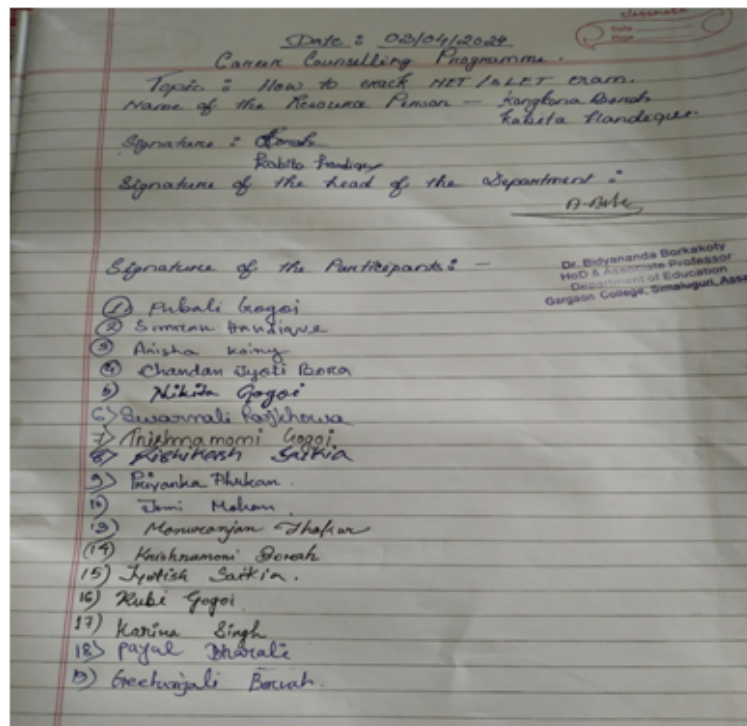 classmate
Date
Page
Date : 03/04/2024
Career Counselling Programme.
Topic : How to crack NET / SLET exam.
Name of the Resource Person — Kangkona Borah
Kabita Handique.
Signature : Borah
Kabita Handique
Signature of the head of the Department :
Dr. Bidyananda Borkakoty
HoD & Associate Professor
Department of Education
Gargaon College, Simaluguri, Assa
Signature of the Participants : —
1) Pubali Gogoi
2) Simran Handique
3) Anisha
4) Chandan Jyoti Bora
5) Nikita Gogoi
6) Swarnali Rajkhowa
7) Trishnamoni Gogoi
8) Rishikesh Saikia
9) Priyanka Phukan.
10) Jemi Mohan
13) Monuranjan Thakur
14) Krishnamoni Borah
15) Jyotish Saikia.
16) Rubi Gogoi
17) Karina Singh
18) Payal Bharali
19) Geetanjali Baruah.